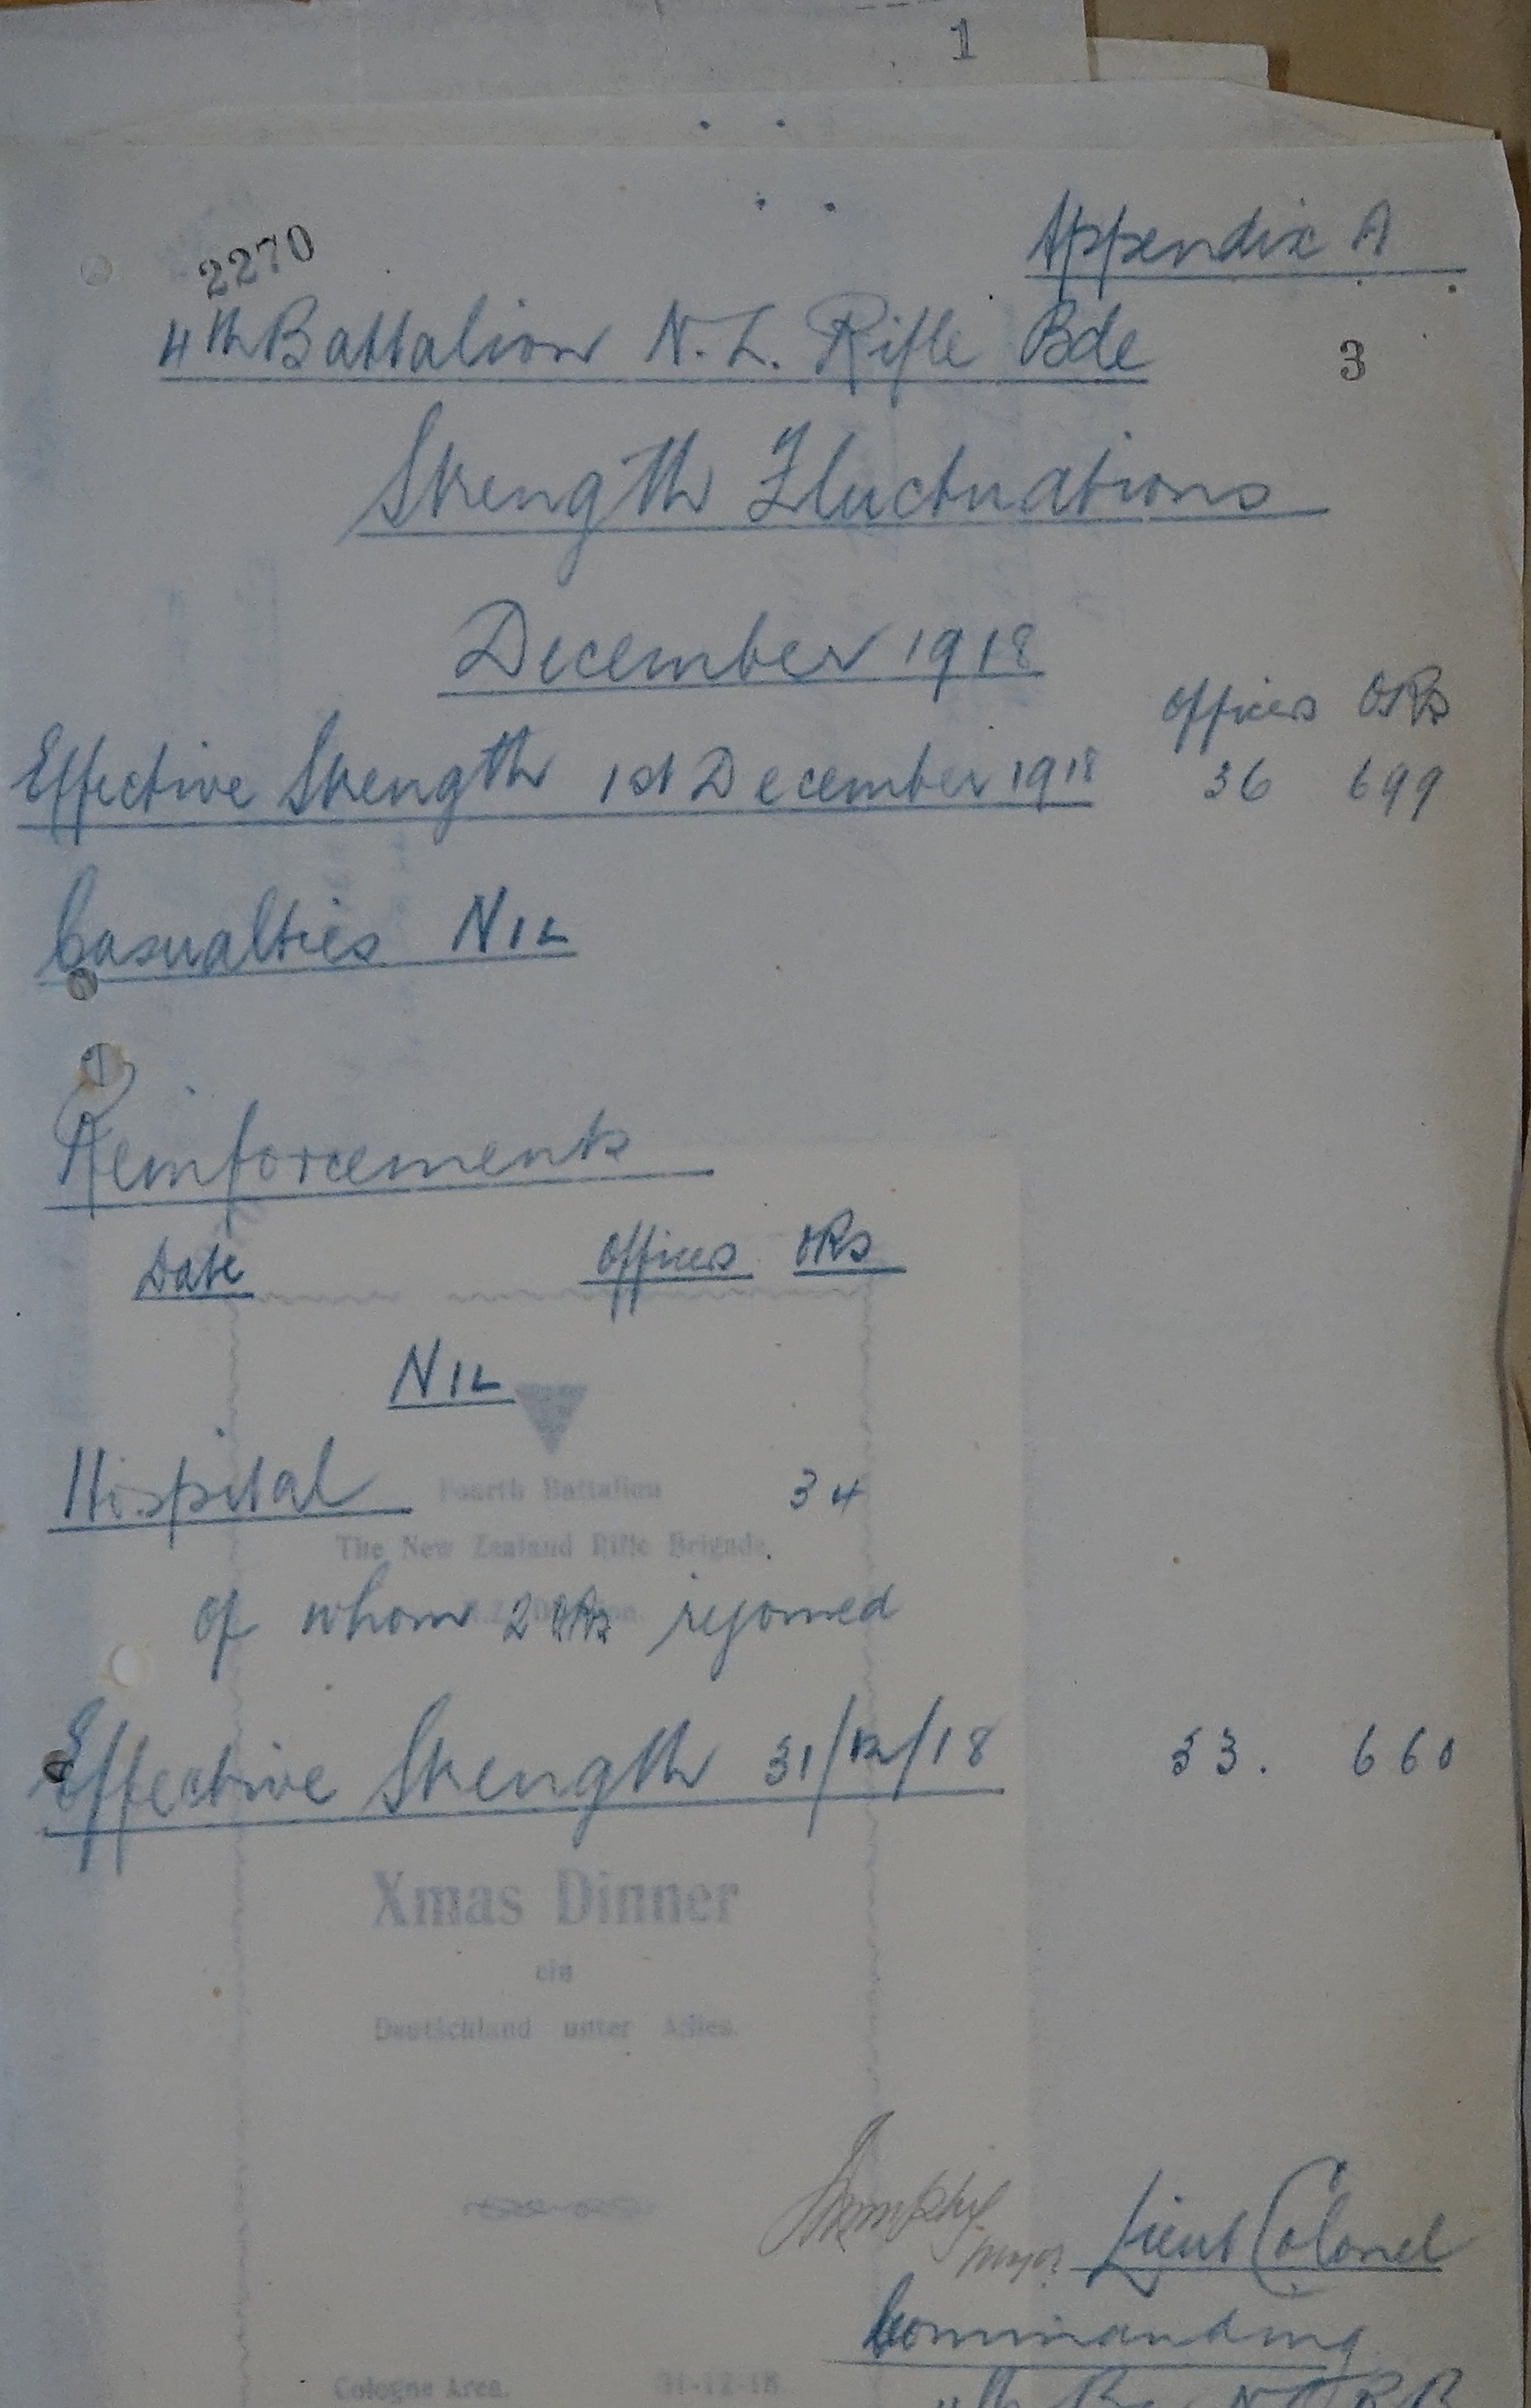 1
Appendix A
2270
4th Battalion N.Z. Rifle Bde
3
Strength Fluctuations
December 1918
Officers ORs
Effective Strength 1st December 1918 36 699
Casualties NIL
Reinforcements
Date Officers ORs
NIL
Hospital 34
Fourth Battalion
The New Zealand Rifle Brigade.
of whom 2 ORs rejoined
Effective Strength 31/12/18 33. 660
Xmas Dinner
ein
Deutschland unter Alles.
Major Lieut Colonel
Commanding
Cologne Area. 31-12-18
4th Bn N.Z.R.B